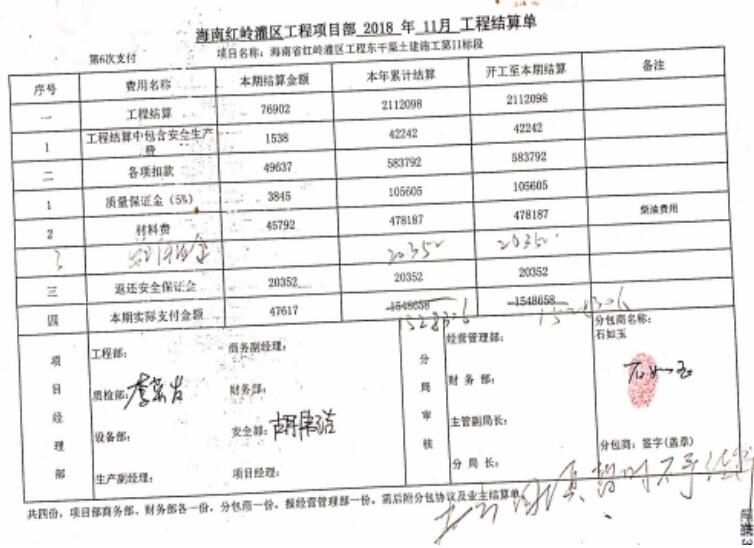 海南红岭灌区工程项目部 2018 年 11月 工程结算单
第6次支付 项目名称：海南省红岭灌区工程东干渠土建施工第II标段
序号 费用名称 本期结算金额 本年累计结算 开工至本期结算 备注
一 工程结算 76902 2112098 2112098
1 工程结算中包含安全生产费 1538 42242 42242
二 各项扣款 49637 583792 583792
1 质量保证金（5%） 3845 105605 105605
2 材料费 45792 478187 478187 柴油费用
3 20352 20352
三 返还安全保证金 20352 20352 20352
四 本期实际支付金额 47617 1548658 1548658
1528306 1528306
项目经理部 分局审核
工程部： 商务副经理： 经营管理部： 分包商名称：
石如玉
质检部： 财务部： 财 务 部： 石如玉
设备部： 安全部： 主管副局长：
生产副经理： 项目经理： 分 局 长： 分包商：签字(盖章)
共四份，项目部商务部、财务部各一份，分包商一份，报经营管理部一份，需后附分包协议及业主结算单